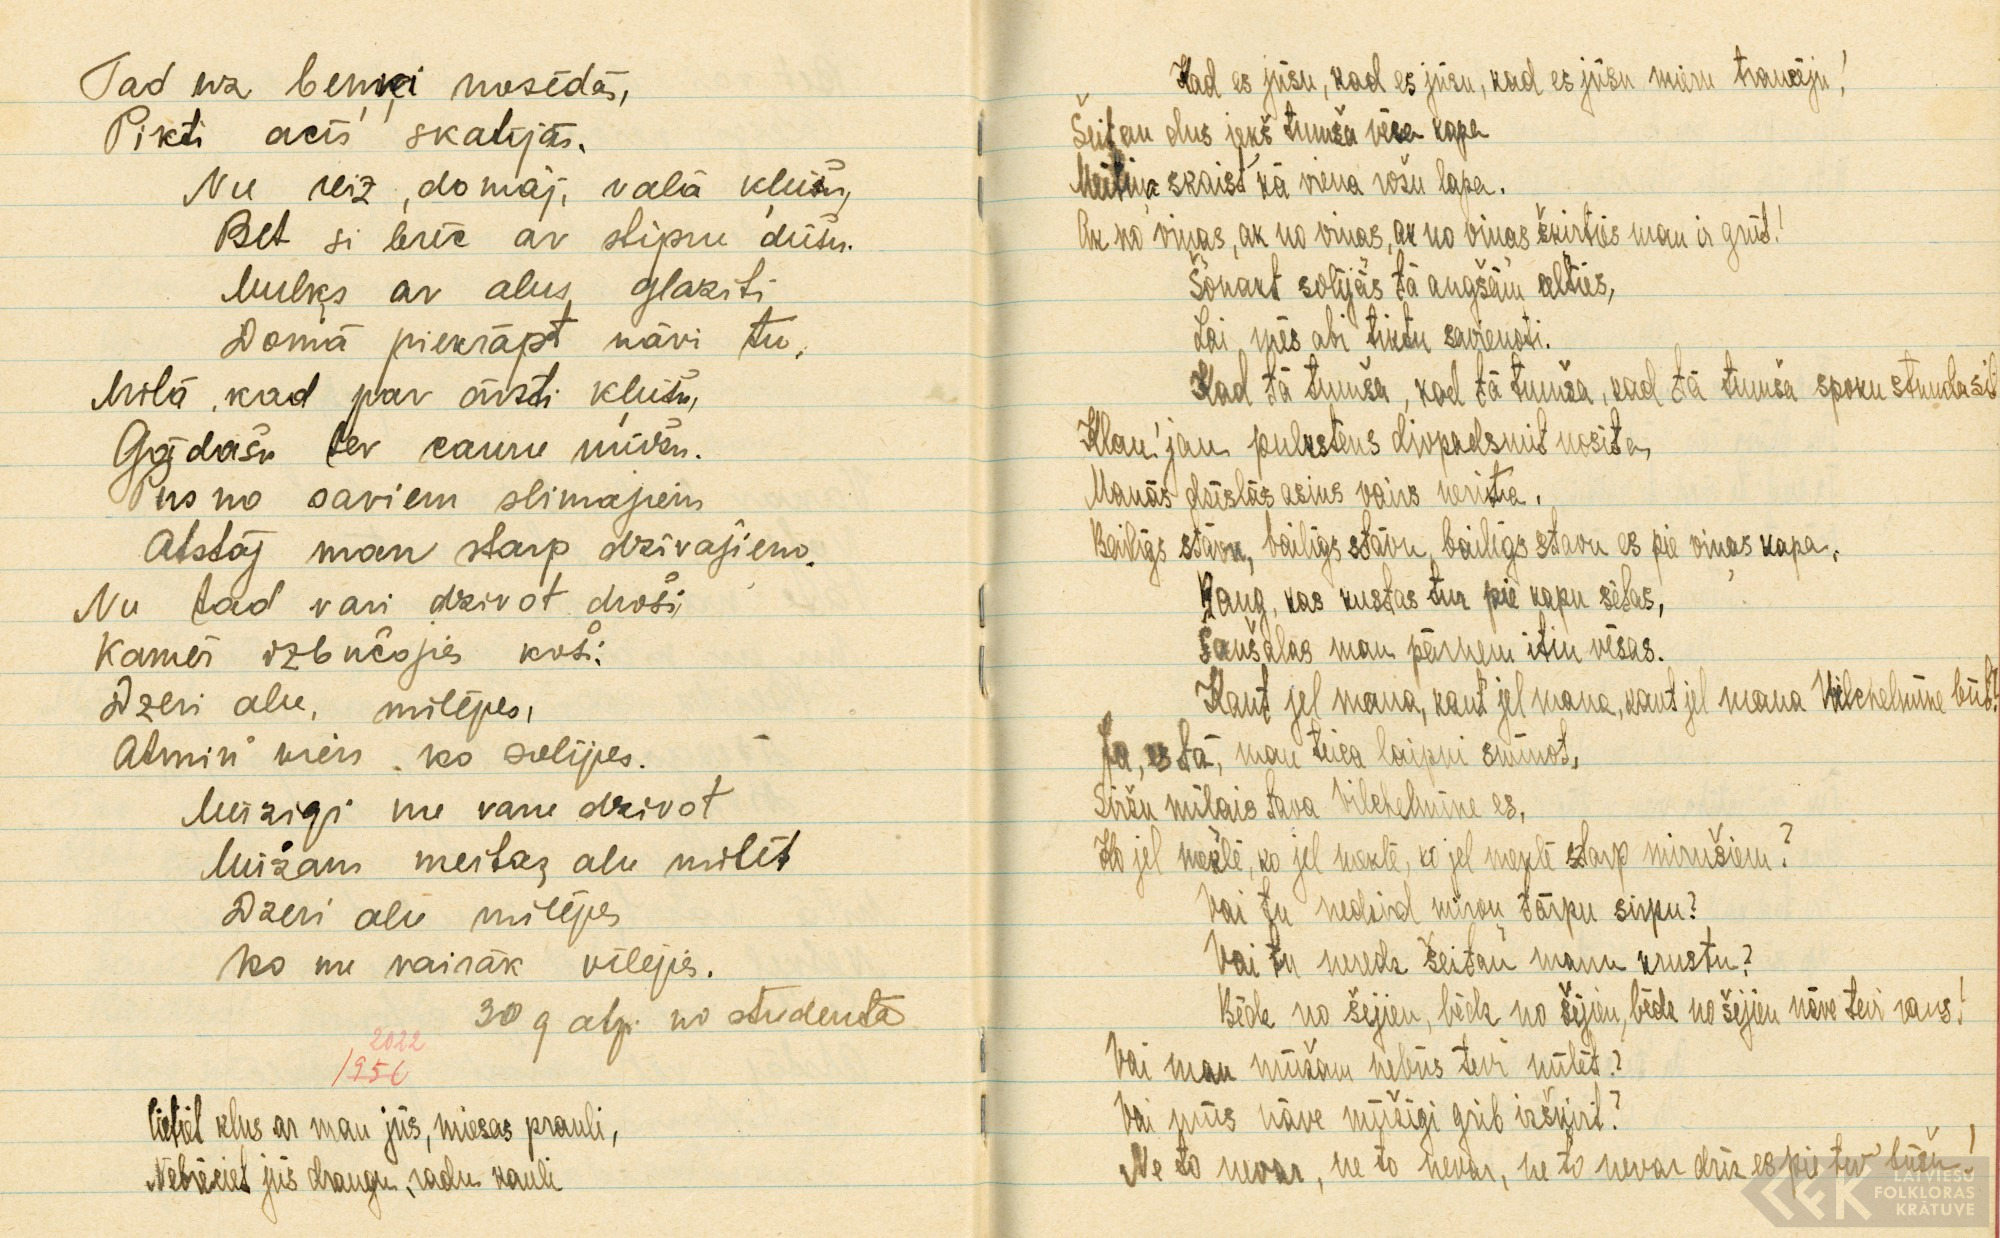 Tad uz benķi nosēdās,
Pikti acīs skatijās.
Nu reiz, domāj, vaļā kļūšu,
Bet si brēc ar stipru dūšu.
Muļķs ar alus glaziti
Domā piekrāpt nāvi tu,
Milā, kad par ārsti kļūšu,
Gādāšu tev cauru mūžu.
Pus no saviem slimajiem
Atstāj man starp dzivajiem.
Nu tad vari dzivot droši
Kamēr izbučojies koši:
Dzeri alu, milējies,
Atmin vien, ko solījies.
Mūzigi nu varu dzivot
Mūžam meitas alu milēt
Dzeri alu milējies
Ko nu vairāk vēlējies.
30 g atp. no studenta
2022
1956
Ciešiet klus ar man jūs, miesas prauli,
Nebrēciet jūs draugu, radu kauli
Kad es jūsu, kad es jūsu, kad es jūsu mieru traucēju!
Šeitan dus iekš tumša vēsa kapa
Meitiņa skaist kā viena rožu lapa.
Ak no viņas, ak no viņas, ak no viņas šķirties man ir grūt!
Šonakt solijās tā augšām celties,
Lai mēs abi tiktu savienoti.
Kad tā tumša, kad tā tumša, kad tā tumša spoku stunda sit
Klau! jau pulkstens divpadsmit nosita,
Manās dzīslās asins vairs nerita.
Bailigs stāvu, bailigs stāvu, bailigs stavu es pie viņas kapa.
Raug, kas kustas tur pie kapu sētas,
Šaušalas man pārņem itin vēsas.
Kaut jel mana, kaut jel mana, kaut jel mana Vilhelmīne būt!
Ja, es tā, man teica laipni smīnot,
Siržu mīlais tava Vilhelmīne es,
Ko jel meklē, ko jel meklē, ko jel meklē starp mirušiem?
Vai tu nedzird miroņ tārpu sirpu?
Vai tu neredz šeitan manu krustu?
Bēdz no šejien, bēdz no šejien, bēdz no šejien nāve tevi raus!
Vai man mūžam nebūs tevi mīlēt?
Vai mūs nāve mūžigi grib izšķirt?
Ne to nevar, ne to nevar, ne to nevar drīz es pie tev' būšu!
LATVIEŠU
FOLKLORAS
KRĀTUVE